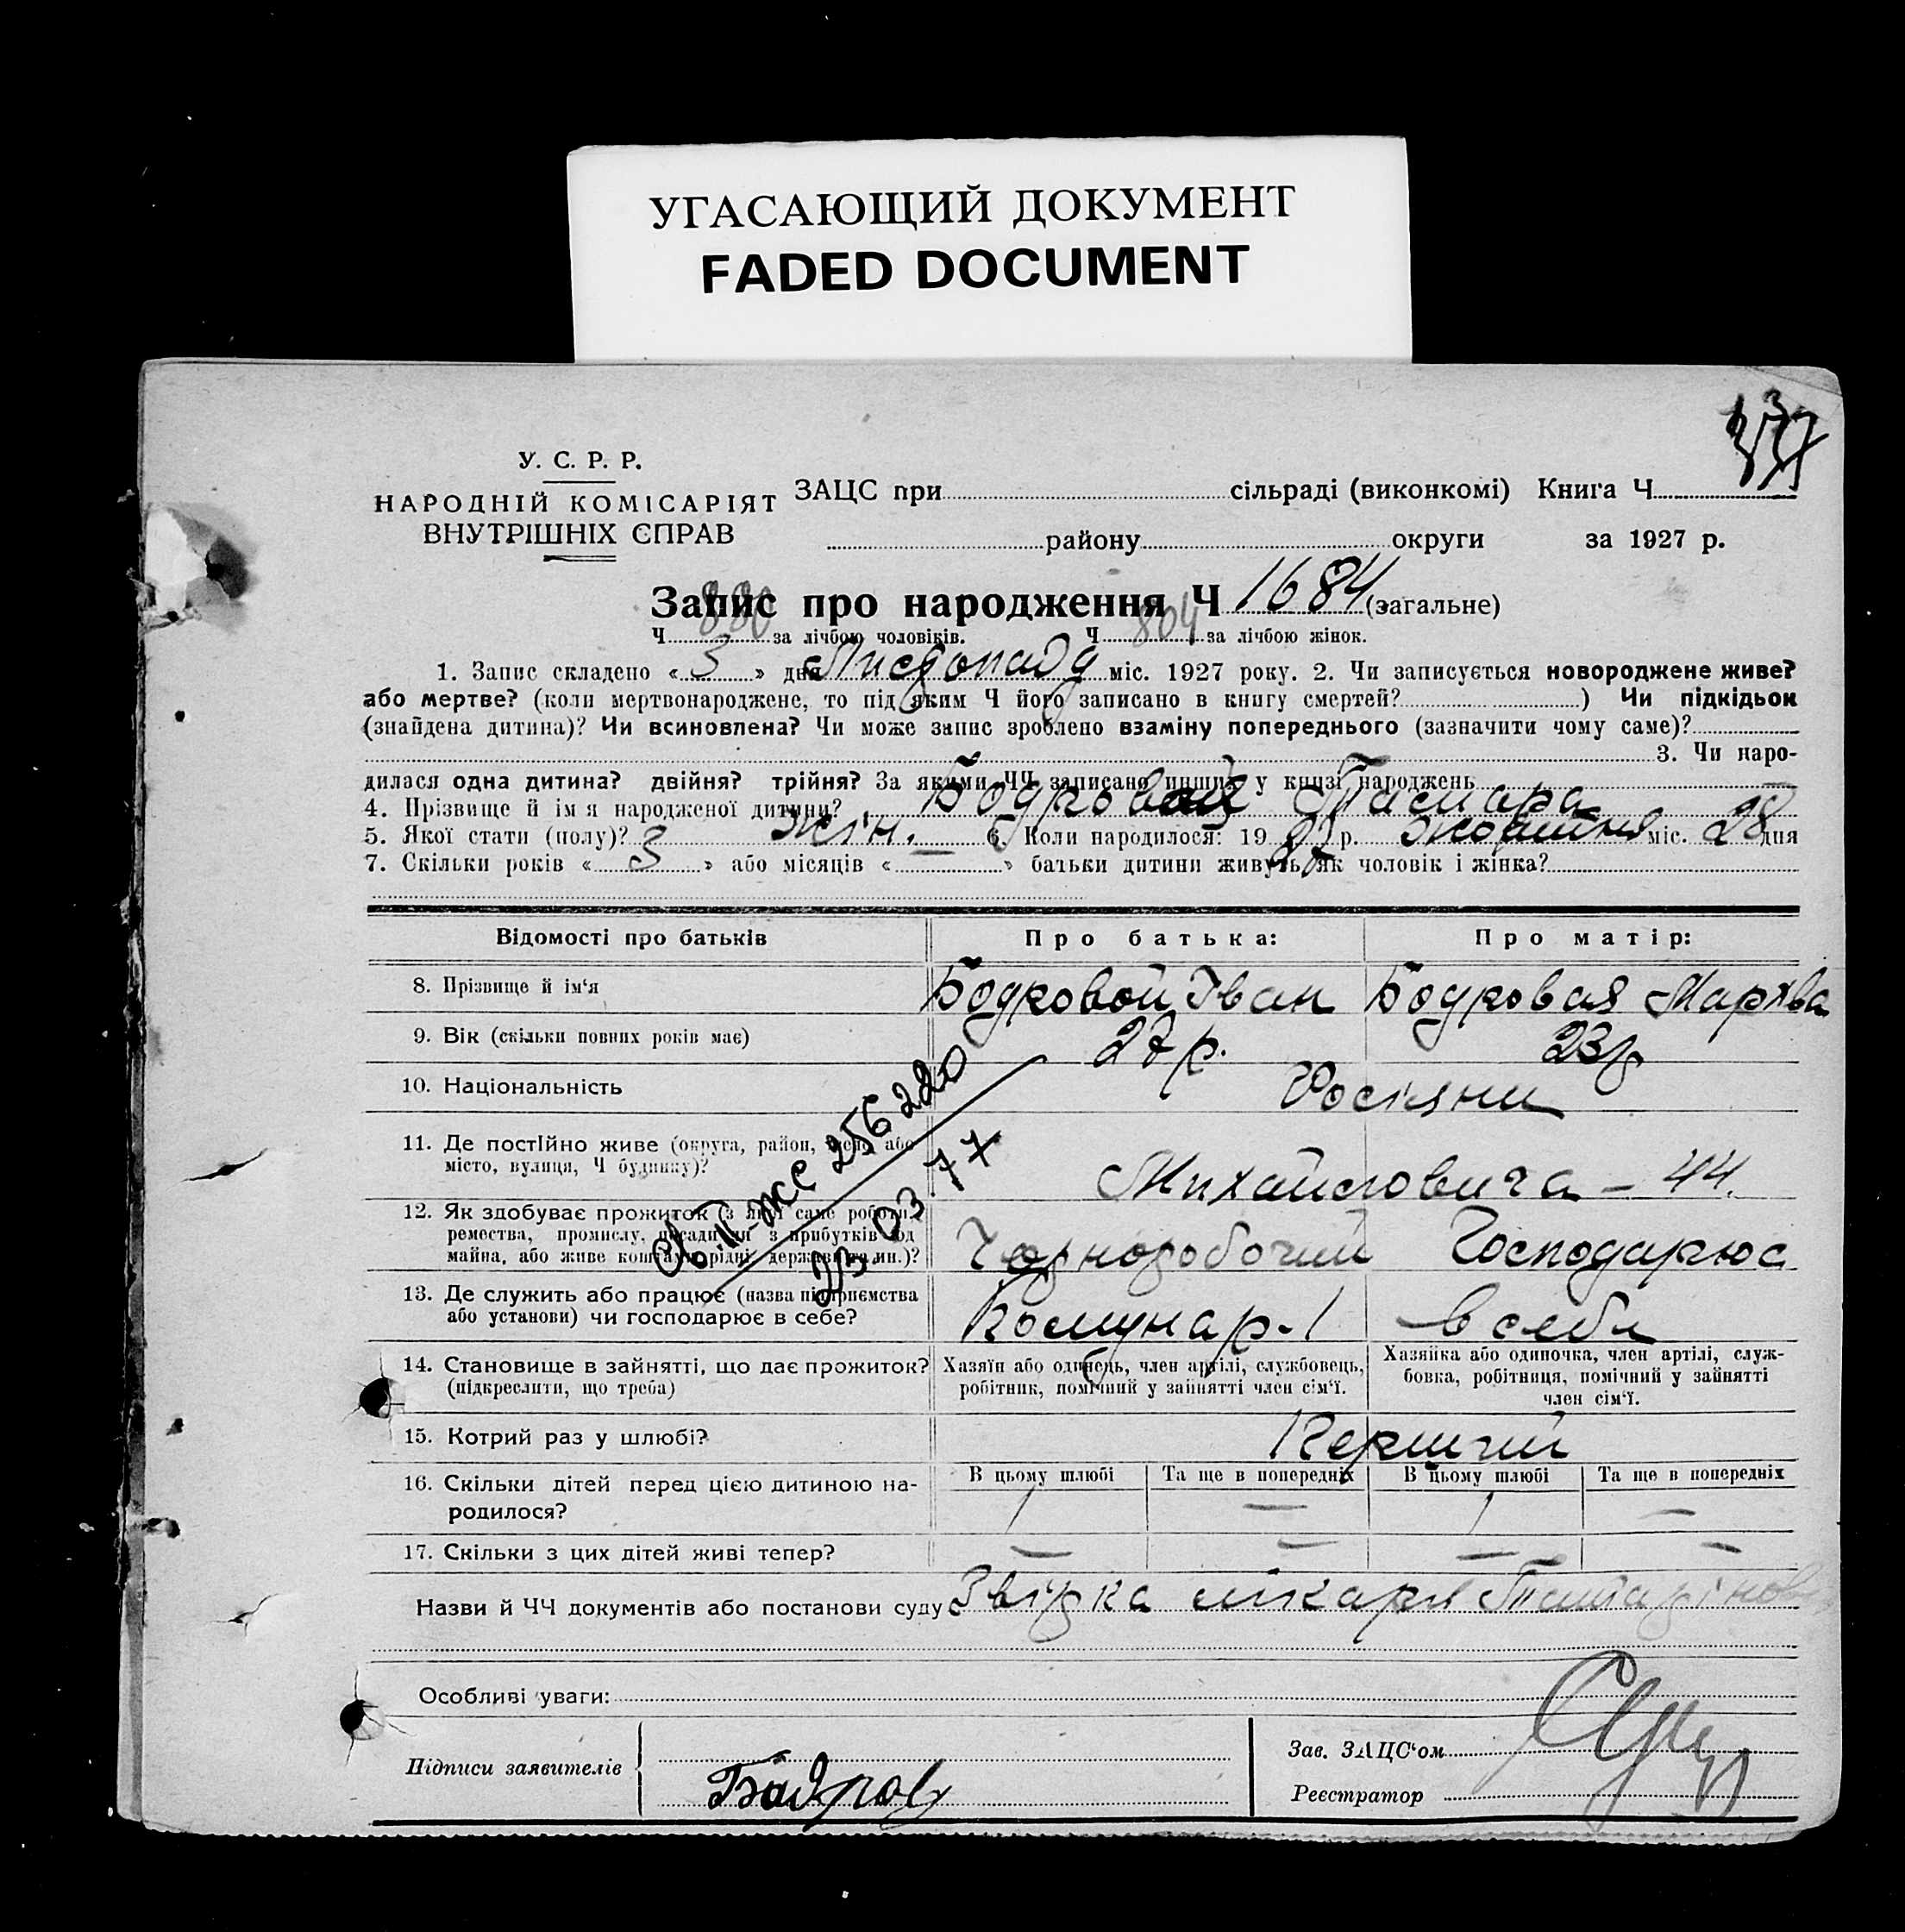 УГАСАЮЩИЙ ДОКУМЕНТ
FADED DOCUMENT
У. С. Р. Р.
НАРОДНІЙ КОМІСАРІЯТ
ВНУТРІШНІХ СПРАВ
ЗАЦС при сільраді (виконкомі) Книга Ч
району округи за 1927 р.
Запис про народження Ч 1684 (загальне)
Ч 880 за лічбою чоловіків. Ч 804 за лічбою жінок.
1. Запис складено « 3 » дня Листопаду міс. 1927 року. 2. Чи записується новороджене живе?
або мертве? (коли мертвонароджене, то під яким Ч його записано в книгу смертей? ) Чи підкідьок
(знайдена дитина)? Чи всиновлена? Чи може запис зроблено взаміну попереднього (зазначити чому саме)?
3. Чи наро-
дилася одна дитина? двійня? трійня? За якими ЧЧ записано инших у книзі народжень
4. Прізвище й ім я народженої дитини? Бодровая Тамара
5. Якої стати (полу)? жін. 6. Коли народилося: 19 27 р. Жовтня міс. 28 дня
7. Скільки років « 3 » або місяців « — » батьки дитини живуть як чоловік і жінка?
Відомості про батьків Про батька: Про матір:
8. Прізвище й ім‘я Бодровой Іван Бодровая Мархва
9. Вік (скільки повних років має) 27 р. 23 р
10. Національність Росіяни
11. Де постійно живе (округа, район, село або
місто, вулиця, Ч будинку)? Михайловича – 44.
12. Як здобуває прожиток (з якої саме роботи,
ремества, промислу, посади чи з прибутків од
майна, або живе коштами рідні, держави та ин.)? Чорноробочий Господарює
13. Де служить або працює (назва підприємства
або установи) чи господарює в себе? Комунар-1 в себе
14. Становище в зайнятті, що дає прожиток?
(підкреслити, що треба)
Хазяїн або одинець, член артілі, службовець,
робітник, помічний у зайнятті член сім‘ї.
Хазяйка або одиночка, член артілі, служ-
бовка, робітниця, помічний у зайнятті
член сім‘ї.
15. Котрий раз у шлюбі? Перший
16. Скільки дітей перед цією дитиною на-
родилося?
В цьому шлюбі Та ще в попередніх В цьому шлюбі Та ще в попередніх
1 — 1 —
17. Скільки з цих дітей живі тепер? — — — —
Назви й ЧЧ документів або постанови суду Звірка лікаря
Особливі уваги:
Підписи заявителів Бодров
Зав. ЗАЦС‘ом
Реєстратор
256220
23.03.77